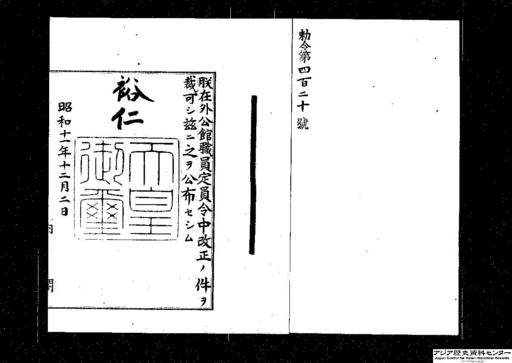 勅令第四百二十號
朕在外公館職員定員令中改正ノ件ヲ
裁可シ玆ニ之ヲ公布セシム
裕仁
天皇御璽
昭和十一年十二月二日
アジア歴史資料センター
Japan Center for Asian Historical Records